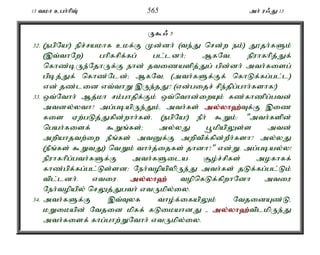 13 வமா உபர்ரீஉ 565 அர் ரஃது 13
ருகூஃ 5
32. (நபியே) நிச்சயமாக உமக்கு முன்னர் (வந்து சென்ற நம்) தூதர்களும் (இவ்வாறே) பரிகசிக்கப் பட்டனர்; ஆகவே, நிராகரித்துக் கொண்டிருந்தோருக்கு நான் தவணையளித்துப் பின்னர் அவர்களைப் பிடித்துக் கொண்டேன்; ஆகவே, (அவர்களுக்குக் கொடுக்கப்பட்ட) என் தண்டனை எவ்வாறு இருந்தது? (என்பதைச் சிந்திப்பார்களாக)
33. ஒவ்வோர் ஆத்மா சம்பாதிக்கும் ஒவ்வொன்றையும் கண்காணிப்பவன் அவனல்லவா? அப்படியிருந்தும், அவர்கள் அல்லாஹ்வுக்கு இணை களை ஏற்படுத்துகின்றார்கள். (நபியே) நீர் கூறும்; "அவர்களின் பெயர்களைக் கூறுங்கள்; அல்லது பூமியிலுள்ள அவன் அறியாதவற்றை நீங்கள் அவனுக்கு அறிவிக்கின்றீர்களா? அல்லது (நீங்கள் கூறுவது) வெறும் வார்த்தைகள் தானா?" என்று. அப்படியல்ல! நிராகரிப்பவர்களுக்கு அவர்களுடைய சூழ்ச்சிகள் அழகாகக் காண்பிக்கப்பட்டுள்ளன; நேர்வழியிலிருந்து அவர்கள் தடுக்கப்பட்டும் விட்டனர். எவரை அல்லாஹ் வழிகெடுக்கிறானோ அவரை நேர்வழியில் செலுத்துபவர் எவருமில்லை.
34. அவர்களுக்கு இவ்வுலக வாழ்க்கையிலும் வேதனையுண்டு; மறுமையின் வேதனை மிகக் கடுமையானது - அல்லாஹ்விடமிருந்து அவர்களைக் காப்பாற்றுவோர் எவருமில்லை.